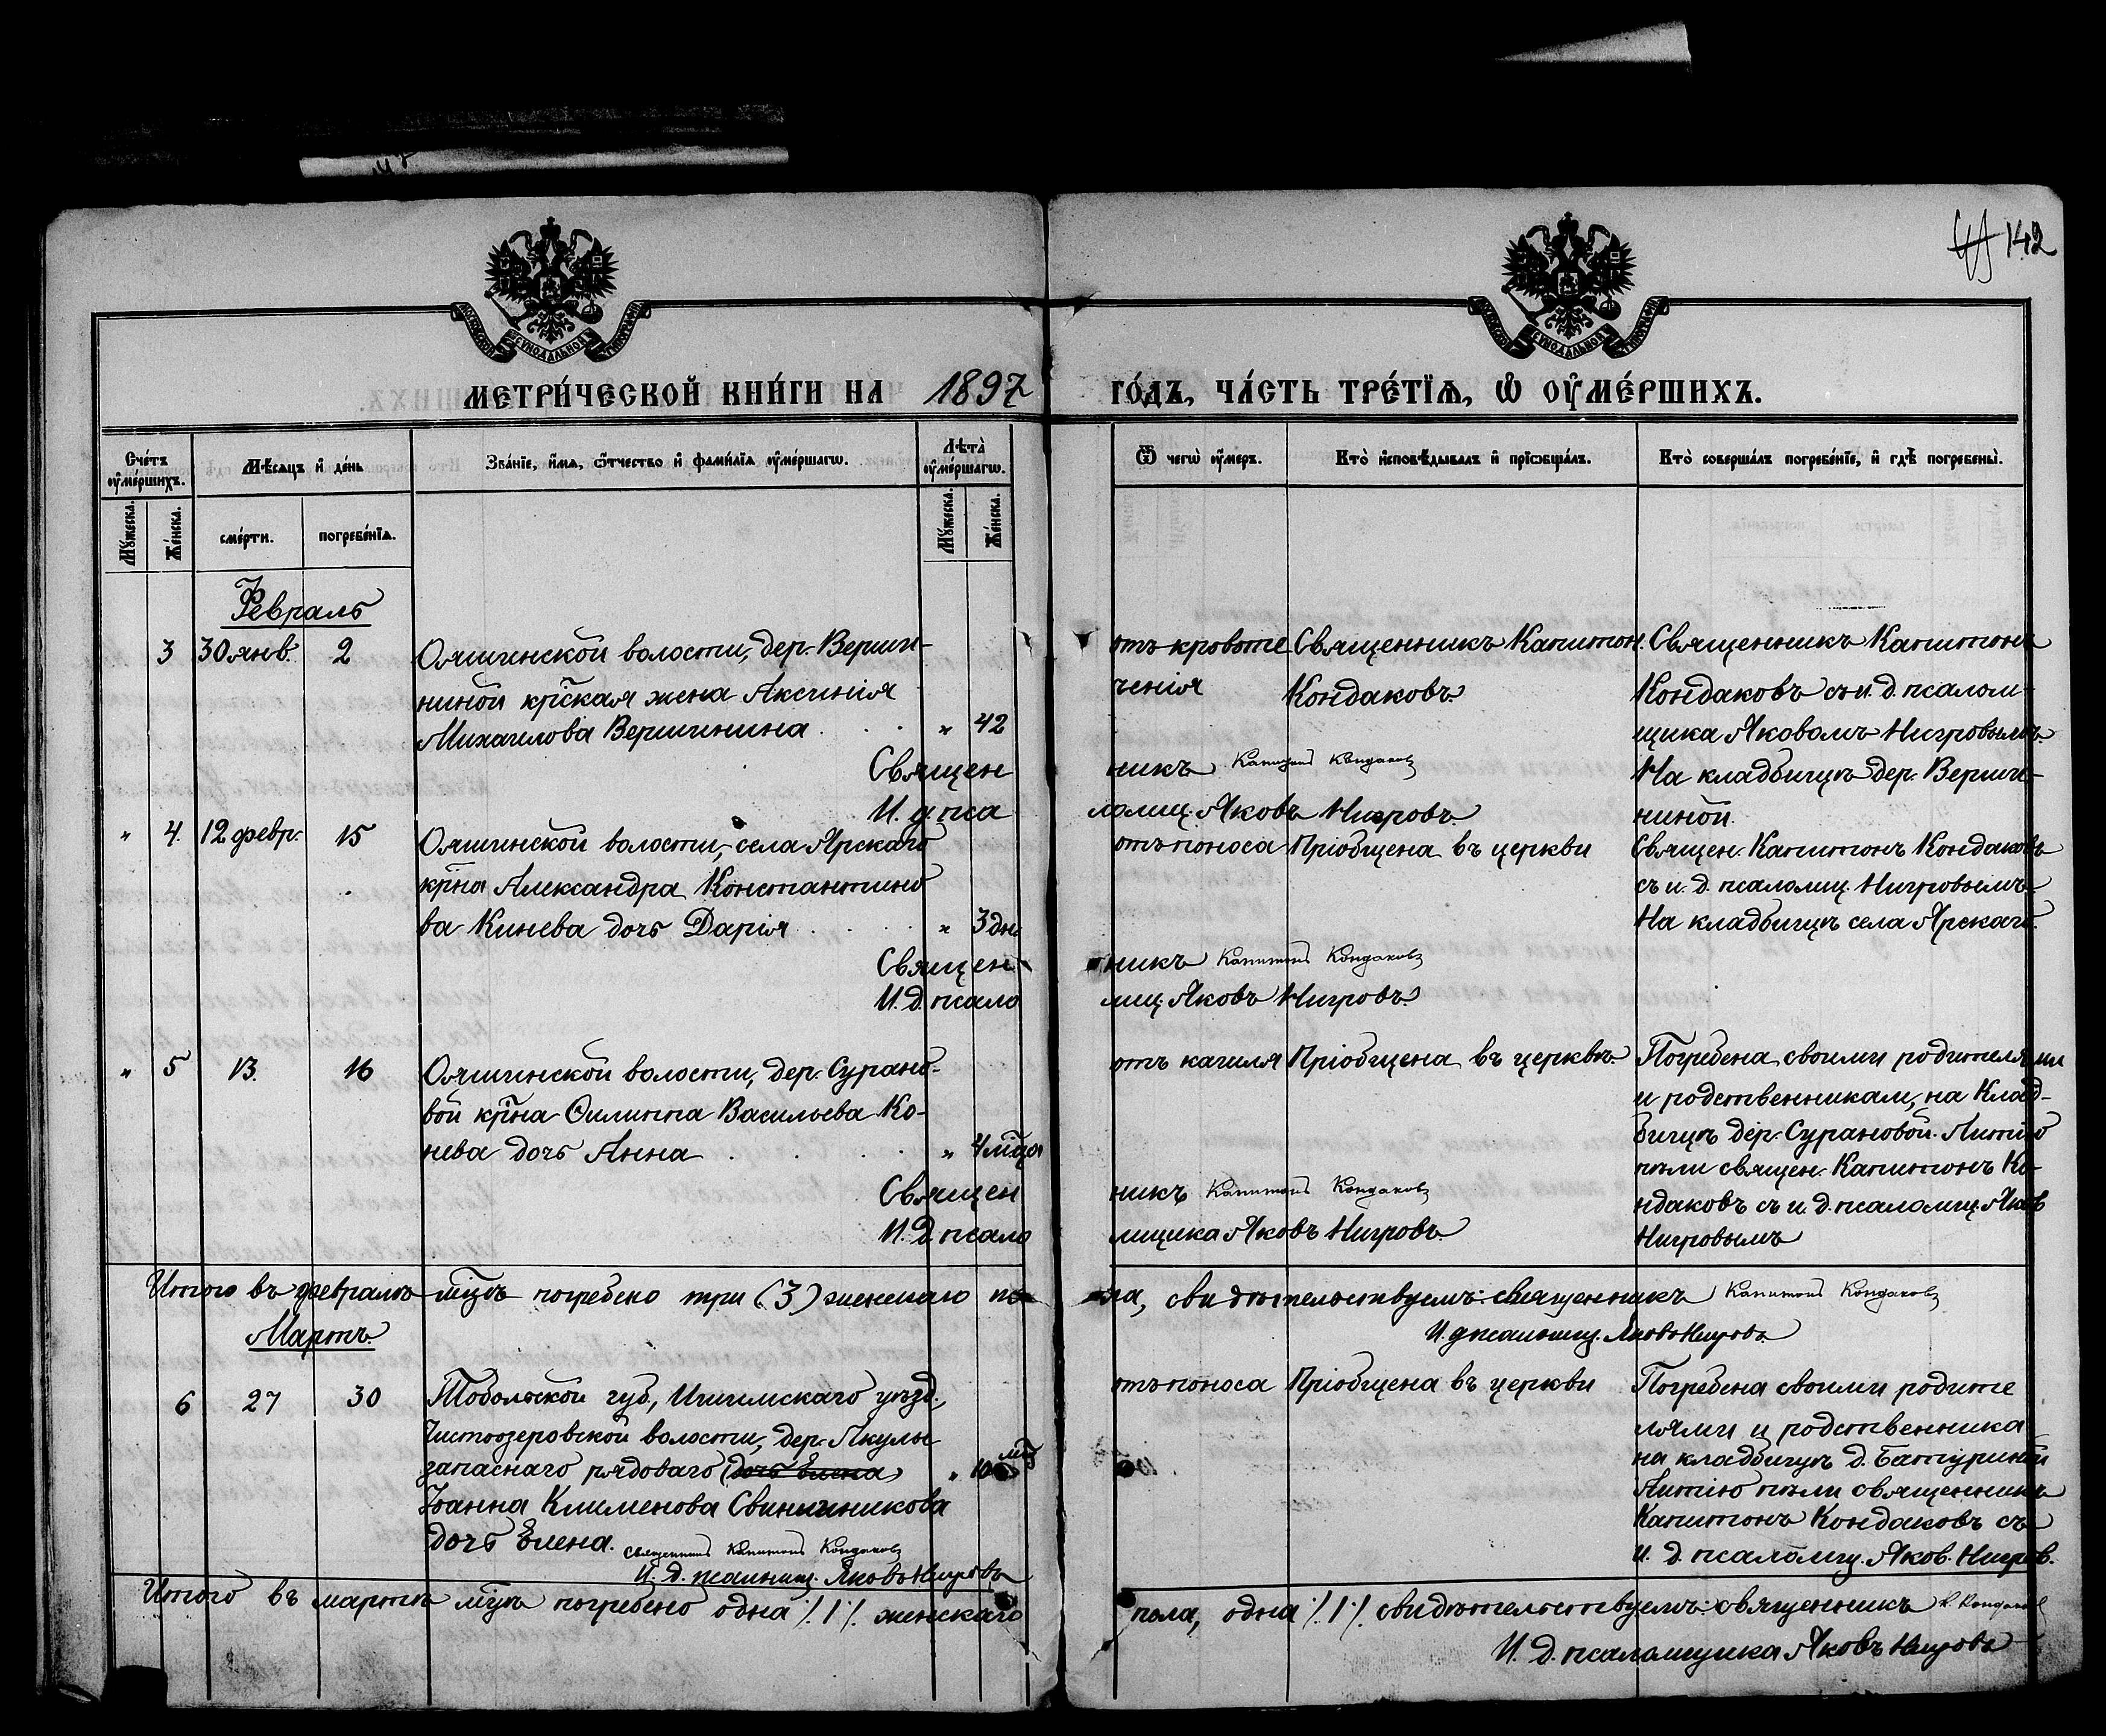 142
МОСКОВСКОЙ СѴНОДАЛЬНОЙ ТИПОГРАФІИ
МОСКОВСКОЙ СѴНОДАЛЬНОЙ ТИПОГРАФІИ
МЕТРИ́ЧЕСКОЙ КНИ́ГИ НА 1897 ГО́ДЪ, ЧА́СТЬ ТРЕ́ТЇѦ, Ѡ҆ ОУ҆МЕ́РШИХЪ.
Сче́тъ оу҆ме́ршихъ.
Мѣ́сѧцъ и҆ де́нь
Зва́нїе, и҆́мѧ, ѻ҆́тчество и҆ фами́лїѧ оу҆ме́ршагѡ.
Лѣта̀ оу҆ме́ршагѡ.
Ѿ чегѡ̀ оу҆́меръ.
Кто̀ и҆сповѣ́дывалъ и҆ прїѡбща́лъ.
Кто̀ соверша́лъ погребе́нїе, и҆ гдѣ̀ погребены̀.
Мꙋ́жеска.
Же́нска.
сме́рти.
погребе́нїѧ.
Мꙋ́жеска.
Же́нска.
Февраль
3 30 янв. 2
Ояшинской волости, дер. Верши-
ниной кр̃ская жена Аксинія
Михаилова Вершинина . . . „ 42
отъ кровоте
ченія
Священникъ Капитон.
Кондаковъ.
Священникъ Капитонъ
Кондаковъ съ и. д. псалом-
щика Яковомъ Нигровымъ.
На кладбищѣ дер. Верши-
ниной.
Священникъ Капитонъ Кондаковъ
И. д. псаломщ. Яковъ Нигровъ.
„ 4. 12 февр. 15
Ояшинской волости, села Ярскаго
кр̃на Александра Константино
ва Кинева дочь Дарія . . . . „ 3 дн.
отъ поноса
Пріобщена въ церкви
Священ. Капитонъ Кондаковъ
съ и. д. псаломщ. Нигровымъ.
На кладбищѣ села Ярскаго.
Священникъ Капитонъ Кондаковъ
И. д. псаломщ. Яковъ Нигровъ.
„ 5 13. 16
Ояшинской волости, дер. Сурано-
вой кр̃на Филиппа Васильева Ко-
нева дочь Анна . . . . „ 4 мц̃а
отъ кашля
Пріобщена въ церквѣ.
Погребена своими родителями
и родственникам, на Клад-
бищѣ дер. Сурановой. Литію
пѣли священ. Капитонъ Ко-
ндаковъ съ и. д. псаломщ. Яков
Нигровымъ
Священникъ Капитонъ Кондаковъ
И. д. псаломщика Яковъ Нигровъ.
Итого въ февралѣ мц̃ѣ погребено три (3) женскаго пола, свидѣтельствуемъ: священникъ Капитонъ Кондаковъ
И. д псаломщ. Яковъ Нигровъ
Мартъ.
6 27 30
Тобольской губ., Ишимскаго уѣзд.,
Чистоозеровской волости, дер. Якуль
запаснаго рядоваго дочь Елена „ 10 мц̃
Іоанна Клименова Свининникова
дочь Елена.
отъ поноса
Пріобщена въ церкви
Погребена своими родите
лями и родственника
на кладбищѣ д. Батуриной
Литію пѣли священникъ
Капитонъ Кондаковъ съ
и. д. псаломщ. Яков. Нигров.
Священникъ Капитонъ Кондаковъ
И. д. псаломщ. Яковъ Нигровъ
Итого въ мартѣ мц̃ѣ погребено одна ⁒ 1 ⁒ женскаго пола, одна ⁒ 1 ⁒ свидѣтельствуемъ: священникъ К. Кондаков
И. д. псаломщика Яковъ Нигровъ